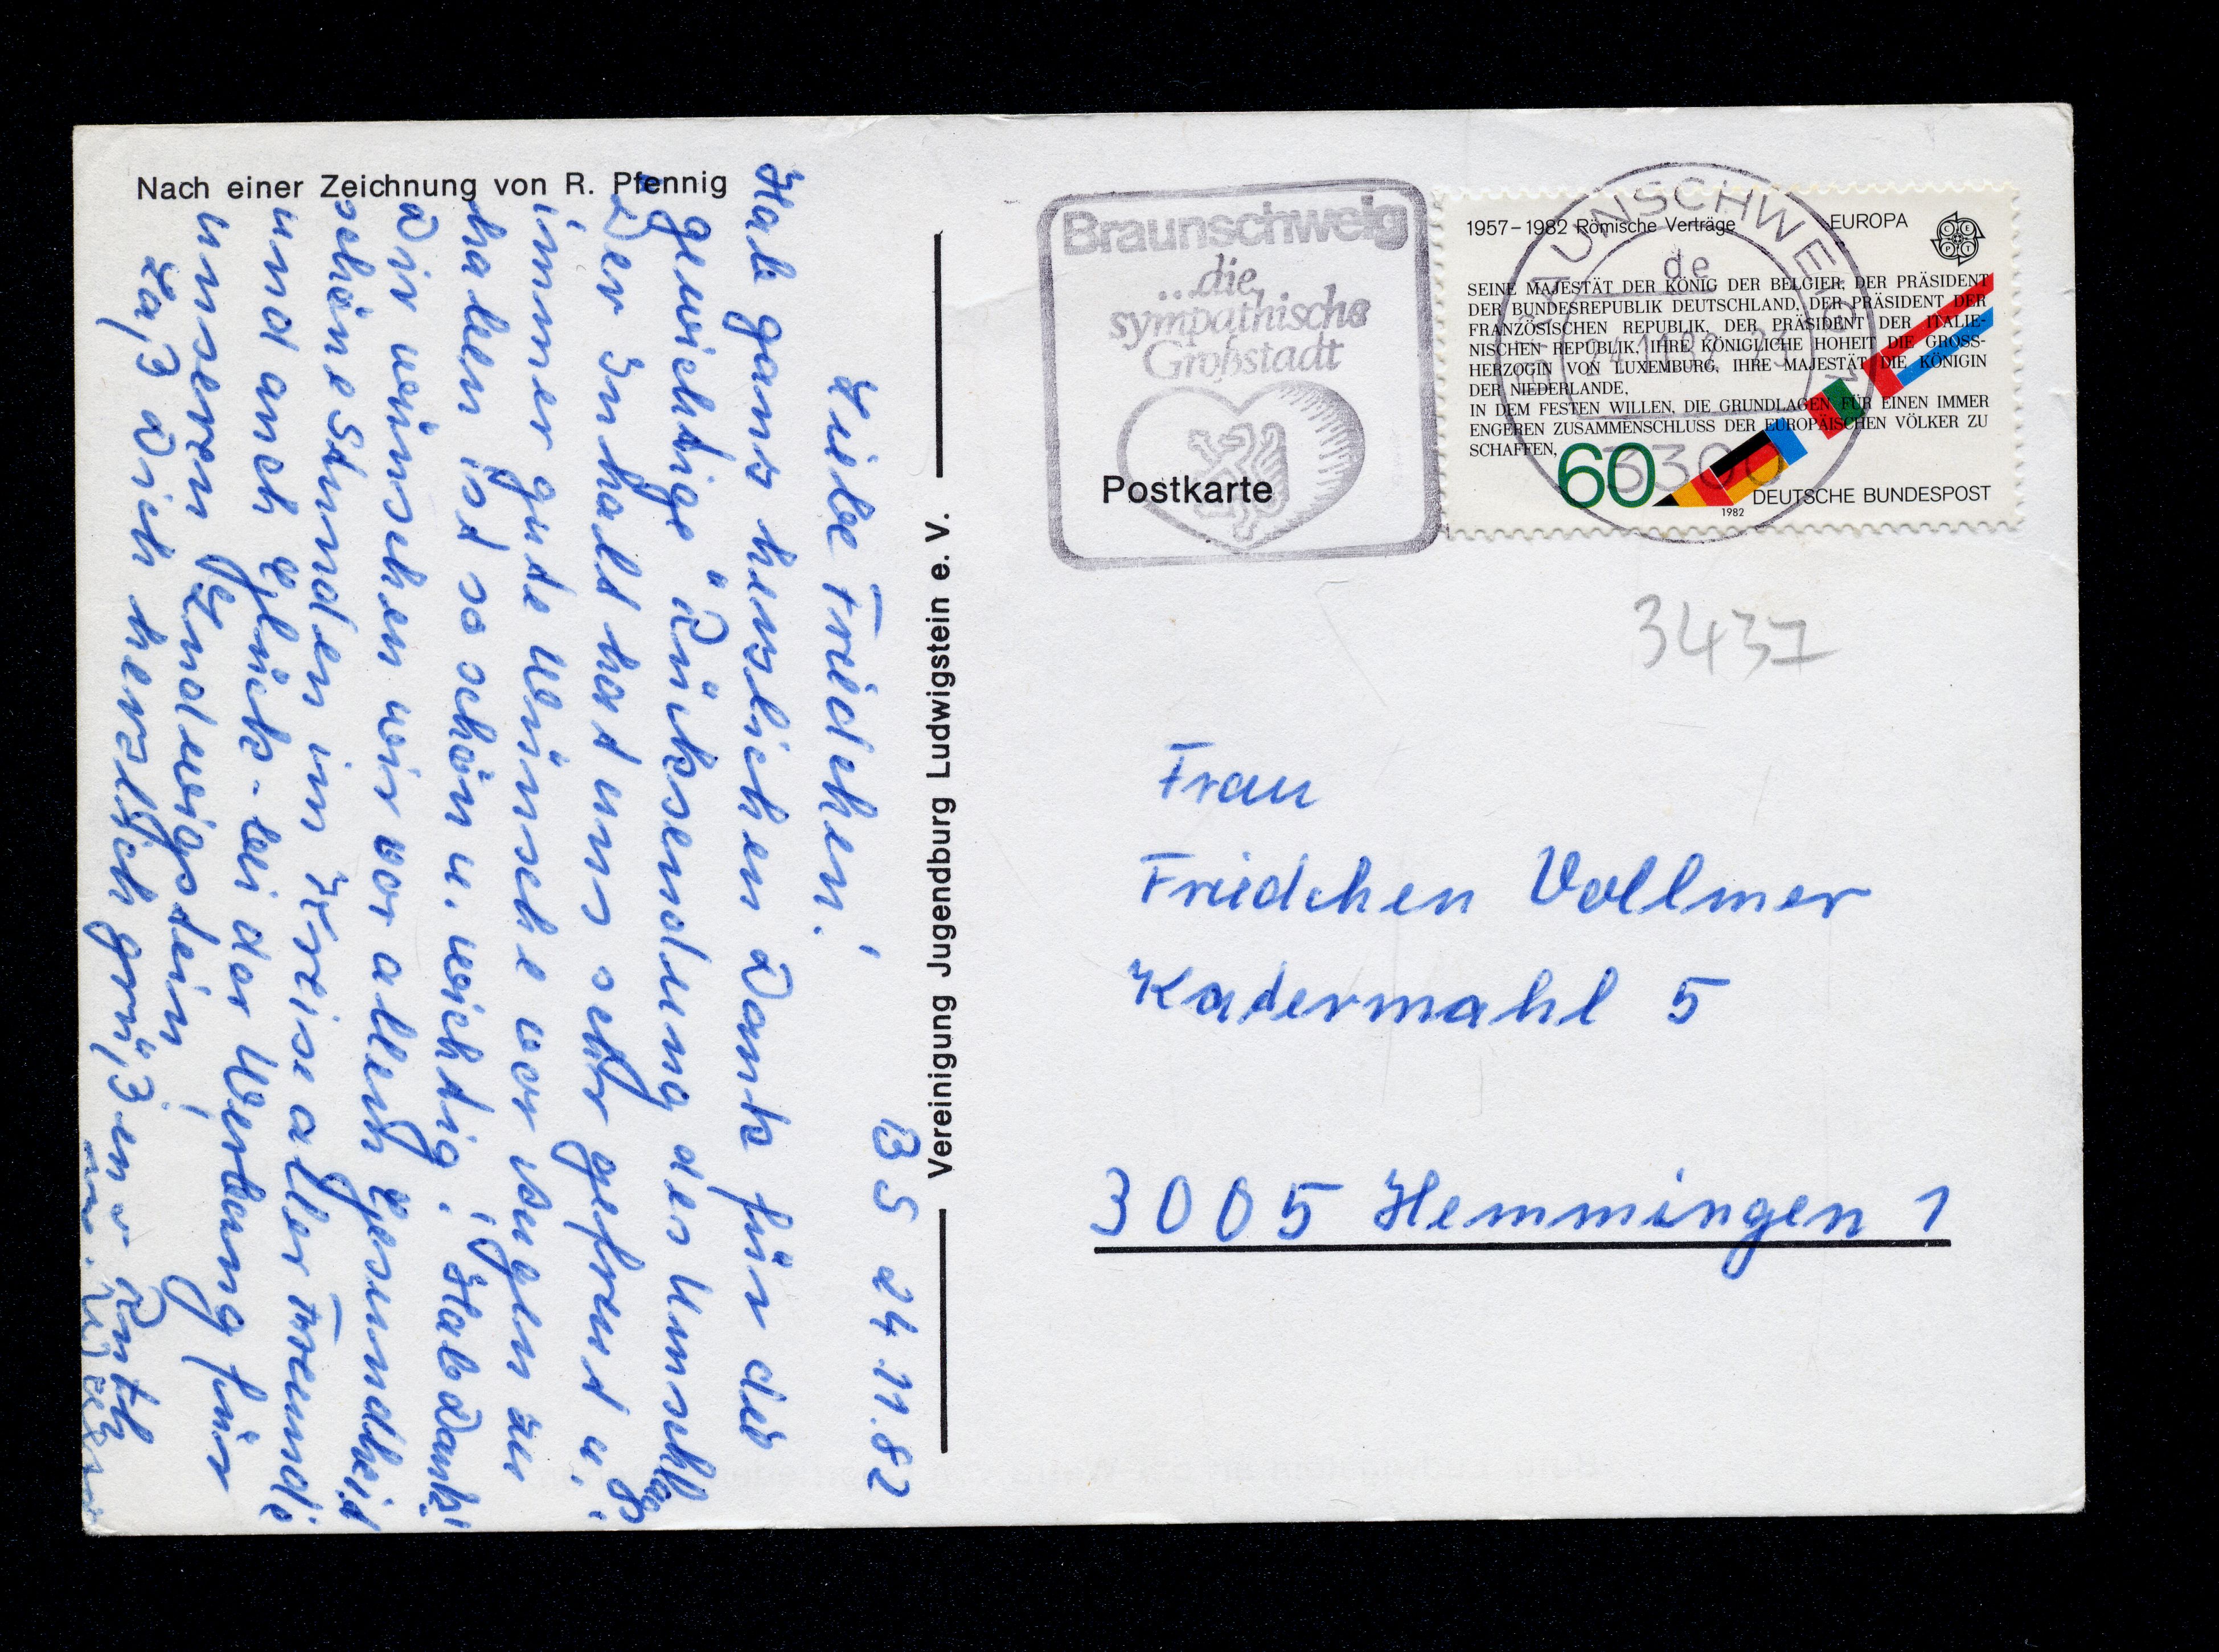 Nach einer Zeichnung von R. Pfennig
BS 24.11.82
Liebe Friedchen!
Hab ganz herzlichen Dank für die
"gewichtige" Rücksendung des Umschlags.
Der Inhalt hat uns sehr gefreut u.
immer gute Wünsche vor Augen zu
haben ist so schön u. wichtig. Hab Dank!
Dir wünschen wir vor allem Gesundheit
schöne Stunden im Kreise aller Freunde
und auch Glück bei der Werbung für
unseren Ludwigstein!
Laß Dich herzlich grüßen v. Ruth
Vereinigung Jugendburg Ludwigstein e. V.
Braunschweig
...die
sympathische
Großstadt
Postkarte
BRAUNSCHWEIG 1
de
24.11.82-21
3300
1957–1982 Römische Verträge
EUROPA
CEPT
SEINE MAJESTÄT DER KÖNIG DER BELGIER, DER PRÄSIDENT
DER BUNDESREPUBLIK DEUTSCHLAND, DER PRÄSIDENT DER
FRANZÖSISCHEN REPUBLIK, DER PRÄSIDENT DER ITALIE-
NISCHEN REPUBLIK, IHRE KÖNIGLICHE HOHEIT DIE GROSS-
HERZOGIN VON LUXEMBURG, IHRE MAJESTÄT DIE KÖNIGIN
DER NIEDERLANDE,
IN DEM FESTEN WILLEN, DIE GRUNDLAGEN FÜR EINEN IMMER
ENGEREN ZUSAMMENSCHLUSS DER EUROPÄISCHEN VÖLKER ZU
SCHAFFEN,
60
DEUTSCHE BUNDESPOST
1982
3437
Frau
Friedchen Vollmer
Katermahl 5
3005 Hemmingen 1